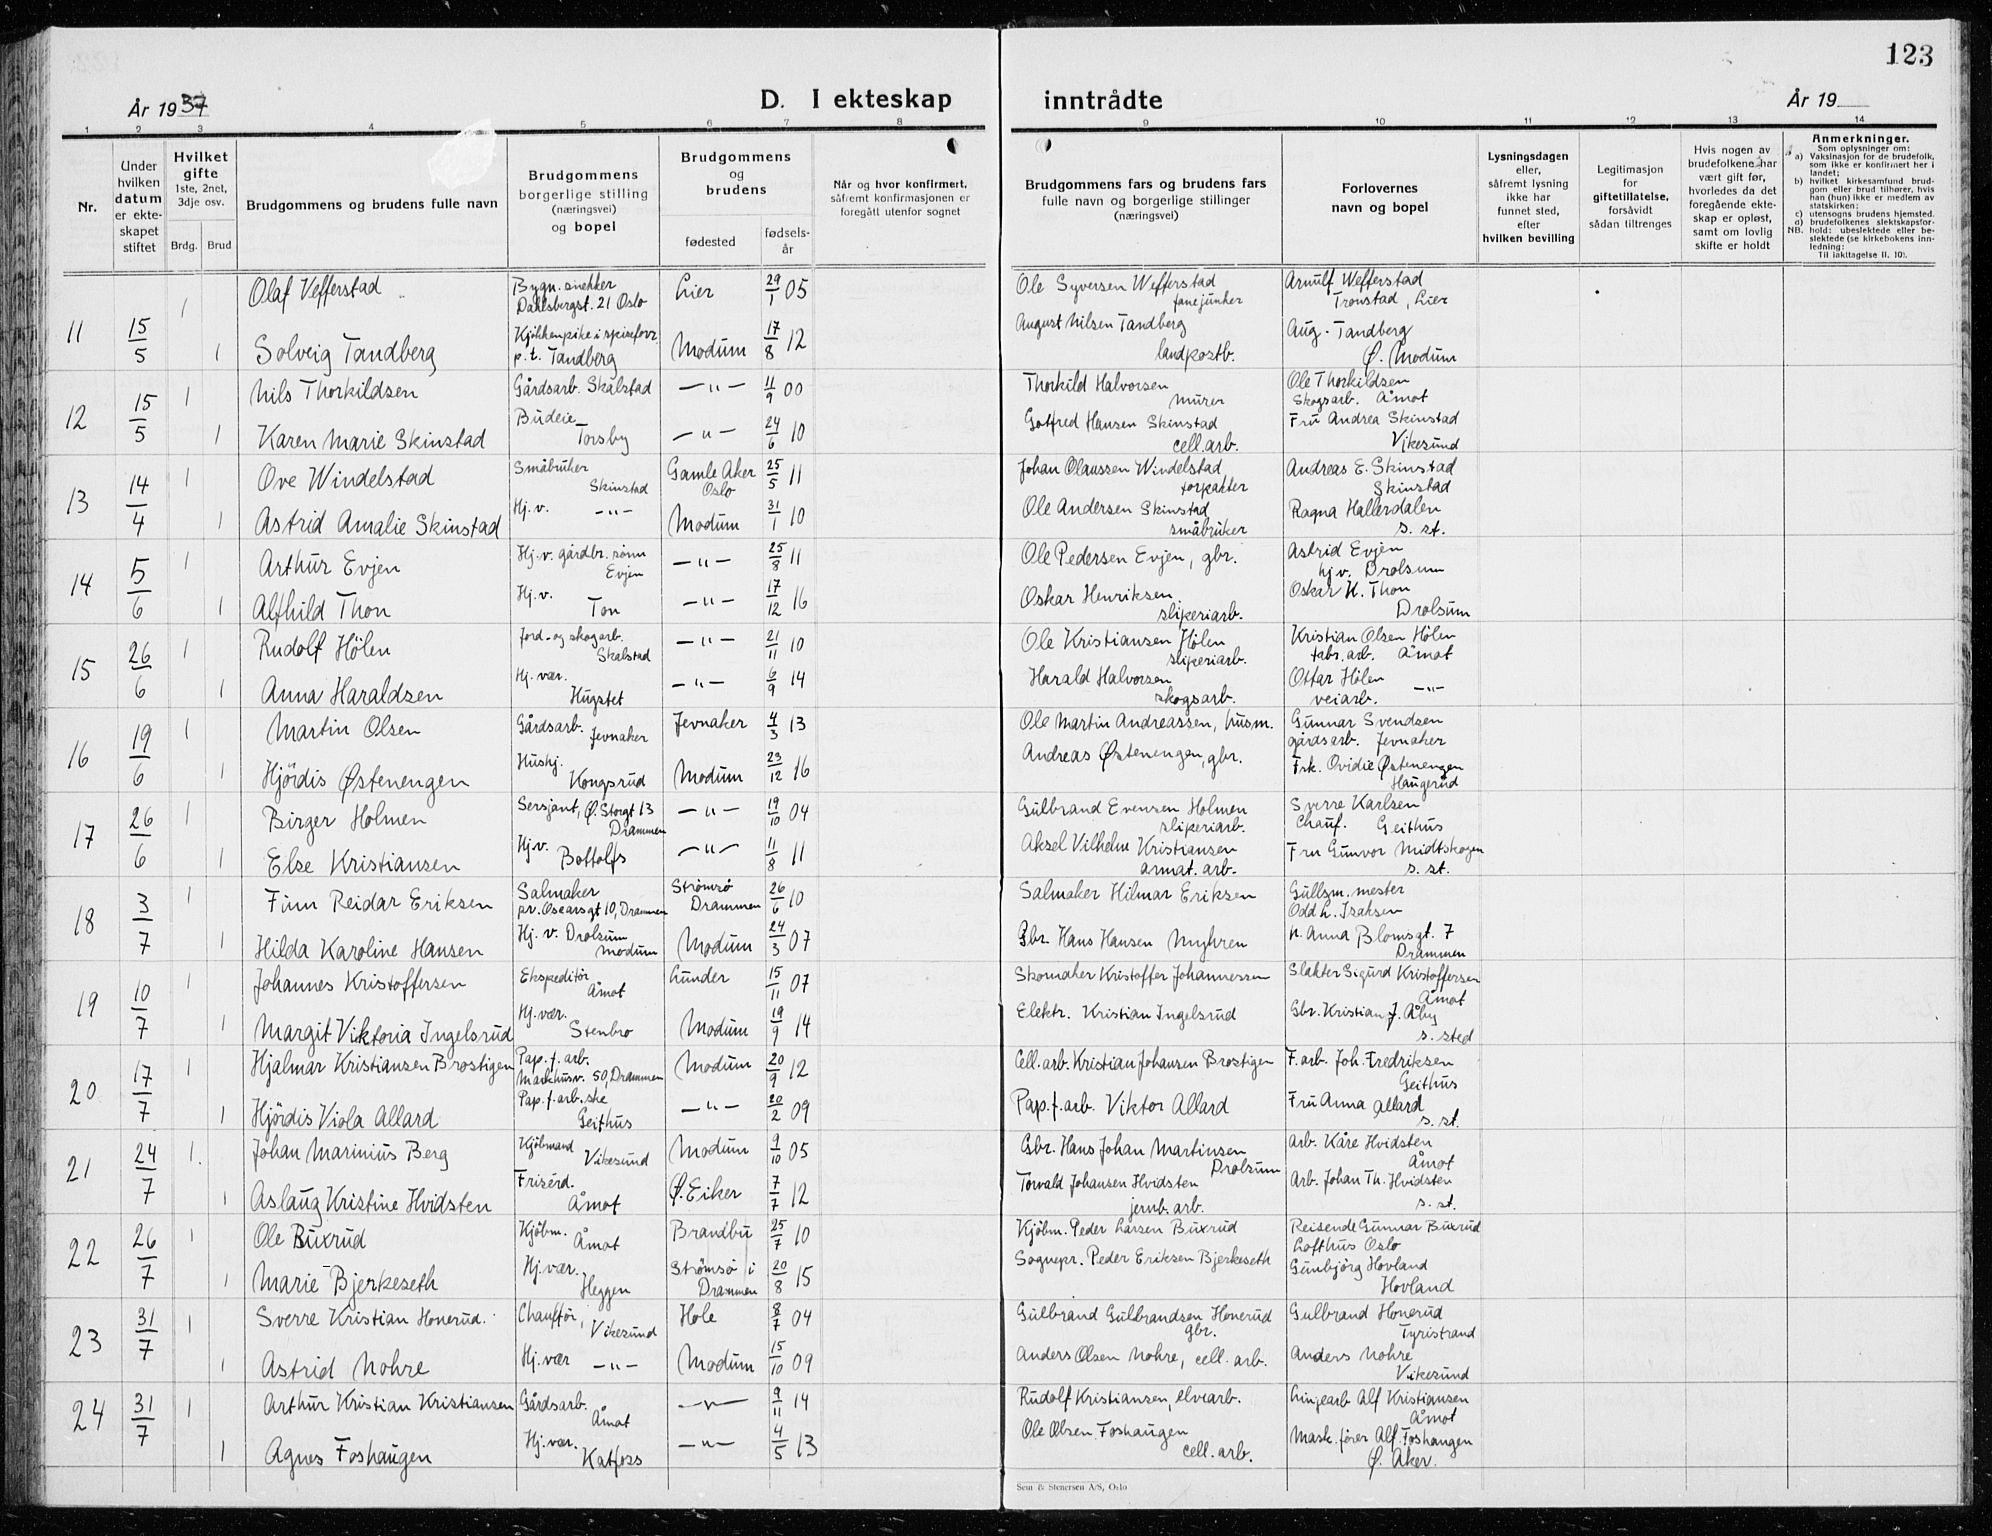 123
År 1937
D. I ekteskap
inntrådte
År 19
1 2 3 4 5 6 7 8 9 10 11 12 13 14
Nr.
Under hvilken datum er ekteskapet stiftet
Hvilket gifte 1ste, 2net, 3dje osv.
Brdg. Brud
Brudgommens og brudens fulle navn
Brudgommens borgerlige stilling (næringsvei) og bopel
Brudgommens og brudens
fødested
fødselsår
Når og hvor konfirmert, såfremt konfirmasjonen er foregått utenfor sognet
Brudgommens fars og brudens fars fulle navn og borgerlige stillinger (næringsvei)
Forlovernes navn og bopel
Lysningsdagen eller, såfremt lysning ikke har funnet sted, efter hvilken bevilling
Legitimasjon for giftetillatelse, forsåvidt sådan tiltrenges
Hvis nogen av brudefolkene har vært gift før, hvorledes da det foregående ekteskap er opløst, samt om lovlig skifte er holdt
Anmerkninger.
Som oplysninger om:
a) Vaksinasjon for de brudefolk, som ikke er konfirmert her i landet;
b) hvilket kirkesamfund brudgom eller brud tilhører, hvis han (hun) ikke er medlem av statskirken;
c) utensogns brudens hjemsted.
d) brudefolkenes slektskapsforhold: ubeslektede eller beslektede (se kirkebokens innledning:
NB.
Til iakttagelse II. 10).
11 15/5 1 Olaf Vefferstad Bygn. snekker Dahlsbergst. 21 Oslo Lier 29/1 05 Ole Syversen Wefferstad fanejunker Arnulf Wefferstad Tronstad, Lier
1 Solveig Tandberg Kjøkkenpike i spiseforr. p.t. Tandberg Modum 17/8 12 August Nilsen Tandberg landpostb. Aug. Tandberg Ø. Modum
12 15/5 1 Nils Thorkildsen Gårdsarb. Skalstad —"— 11/9 00 Thorkild Halvorsen murer Ole Thorkildsen Skogsarb. Åmot
1 Karen Marie Skinstad Budeie Torsby —"— 24/6 10 Gotfred Hansen Skinstad cell.arb. Fru Andrea Skinstad Vikesund
13 14/4 1 Ove Windelstad Småbruker Skinstad Gamle Aker Oslo 25/5 11 Johan Olaussen Windelstad forpakter Andreas E. Skinstad Skinstad
1 Astrid Amalie Skinstad Hj.v. —"— Modum 31/1 10 Ole Andersen Skinstad småbruker Ragna Hallerdalen s. st.
14 5/6 1 Arthur Evjen Hj.v. gårdbr. sønn Evjen —"— 25/8 11 Ole Pedersen Evjen, gbr. Astrid Evjen hj.v. Drolsum
1 Alfhild Thon Hj.v. Ton —"— 17/12 16 Oskar Henriksen sliperiarb. Oskar H. Thon Drolsum
15 26/6 1 Rudolf Hölen Jord- og skogarb. Skalstad —"— 21/11 10 Ole Kristiansen Hölen sliperiarb. Kristian Olsen Hölen fabr.arb. Åmot
1 Anna Haraldsen Hj. vær. Hugstet —"— 6/9 14 Harald Halvorsen skogsarb. Ottar Hölen veiarb. —"—
16 19/6 1 Martin Olsen Gårdsarb. Jevnaker Jevnaker 4/3 13 Ole Martin Andreassen, husm. Gunnar Svendsen gårdsarb. Jevnaker
1 Hjördis Østenengen Hushj. Kongsrud Modum 23/12 16 Andreas Østenengen, gbr. Frk. Ovidie Østenengen Haugerud
17 26/6 1 Birger Holmen Sersjant, Ø. Storgt 13 Drammen —"— 19/10 04 Gulbrand Evensen Holmen sliperiarb. Sverre Karlsen Chauf. Geithus
1 Else Kristiansen Hj.v. Bottolfs —"— 11/8 11 Aksel Vilhelm Kristiansen armat. arb. Fru Gunvor Midtskogen s. st.
18 3/7 1 Finn Reidar Eriksen Salmaker pr. Oscarsgt 10, Drammen Strømsø Drammen 26/6 10 Salmaker Hilmar Eriksen Gullsm. mester Odd L. Isaksen
1 Hilda Karoline Hansen Hj. v. Drolsum Modum Modum 24/3 07 Gbr. Hans Hansen Myhren n. Anna Blomsgt. 7 Drammen
19 10/7 1 Johannes Kristoffersen Ekspeditör Åmot Lunder 15/11 07 Skomaker Kristoffer Johannessen Slakter Sigurd Kristoffersen Åmot
1 Margit Viktoria Ingelsrud Hj. vær. Stenbro Modum 19/9 14 Elektr. Kristian Ingelsrud Gbr. Kristian J. Åby s. sted
20 17/7 1 Hjalmar Kristiansen Brostigen Pap. f. arb. Markhusv. 50, Drammen Modum 20/9 12 Cell. arb. Kristian Johansen Brostigen F. arb. Joh. Fredriksen Geithus
1 Hjördis Viola Allard Pap. f. arb.ske Geithus —"— 20/2 09 Pap. f. arb. Viktor Allard Fru Anna Allard s. st.
21 24/7 1. Johan Marinius Berg Kjöbmand Vikesund Modum 9/10 05 Gbr. Hans Johan Martinsen Drolsum arb. Kåre Hvidsten Åmot
1 Aslaug Kristine Hvidsten Frisérd. Åmot Ø. Eiker 7/7 12 Torvald Johansen Hvidsten jernb. arb. Arb. Johan Th. Hvidsten s. st.
22 26/7 1 Ole Buxrud Kjöbm. Åmot Brandbu 25/7 10 Kjöbm. Peder Larsen Buxrud Reisende Gunnar Buxrud Lofthus Oslo
1 Marie Bjerkeseth Hj. vær. Heggen Strømsø i Drammen 20/8 15 Sognepr. Peder Eriksen Bjerkeseth Gunbjörg Hovland Hovland
23 31/7 1 Sverre Kristian Honerud. Chaufför, Vikesund Hole 8/7 04 Gulbrand Gulbrandsen Honerud gbr. Gulbrand Honerud Tyristrand
1 Astrid Nohre Hj. vær —"— Modum 15/10 09 Anders Olsen Nohre, cell. arb. Anders Nohre Vikesund
24 31/7 1 Arthur Kristian Kristiansen Gårdsarb. Åmot —"— 9/11 14 Rudolf Kristiansen, elvearb. Linjearb Alf Kristiansen Åmot
1 Agnes Foshaugen Hj. vær. Katfoss —"— 4/5 13 Ole Olsen Foshaugen cell. arb. Mask. fører Alf Foshaugen Ø. Aker.
Sem & Stenersen A/S, Oslo